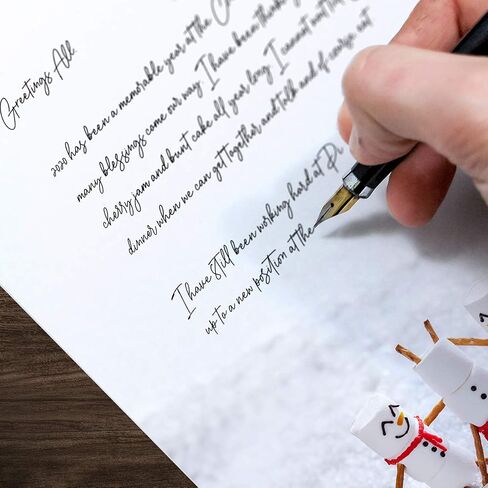 Greetings All.
2020 has been a memorable year at the
many blessings come our way I have been
cherry jam and bunt cake all year long I cannot wait
dinner when we can get together and talk and of course eat
I have still been working hard at
up to a new position at the